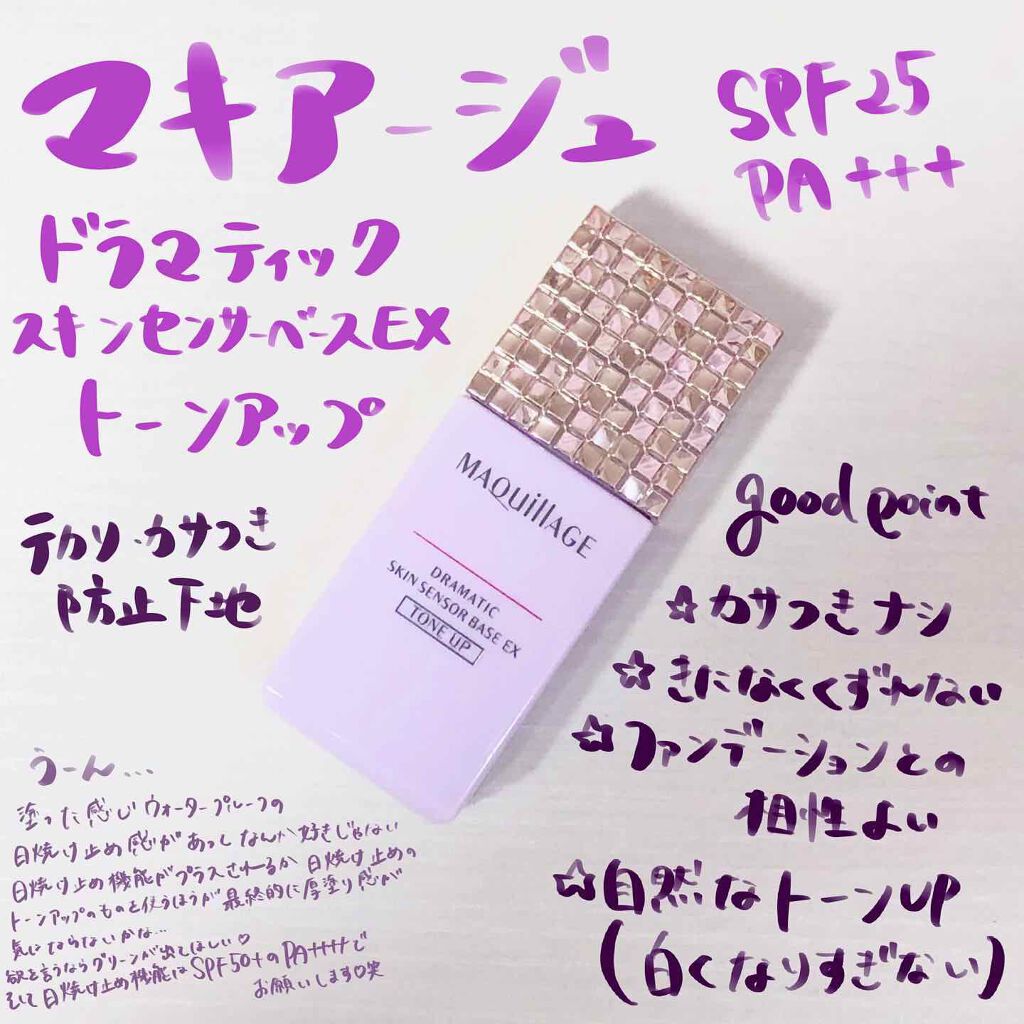 マキアージュ
SPF25
PA+++
ドラマティック
スキンセンサーベースEX
トーンアップ
MAQuillAGE
DRAMATIC
SKIN SENSOR BASE EX
TONE UP
テカリ・カサつき
防止下地
good point
☆カサつきナシ
☆きになくくずれない
☆ファンデーションとの
相性よい
☆自然なトーンUP
(白くなりすぎない)
うーん...
塗った感じウォータープルーフの
日焼け止め感があってなんか好きじゃない
日焼け止め機能がプラスされるか日焼け止めの
トーンアップのものを使うほうが最終的に厚塗り感が
気にならないかな...
欲を言うならグリーンが出てほしい♡
そして日焼け止め機能はSPF50+のPA++++で
お願いします♡笑